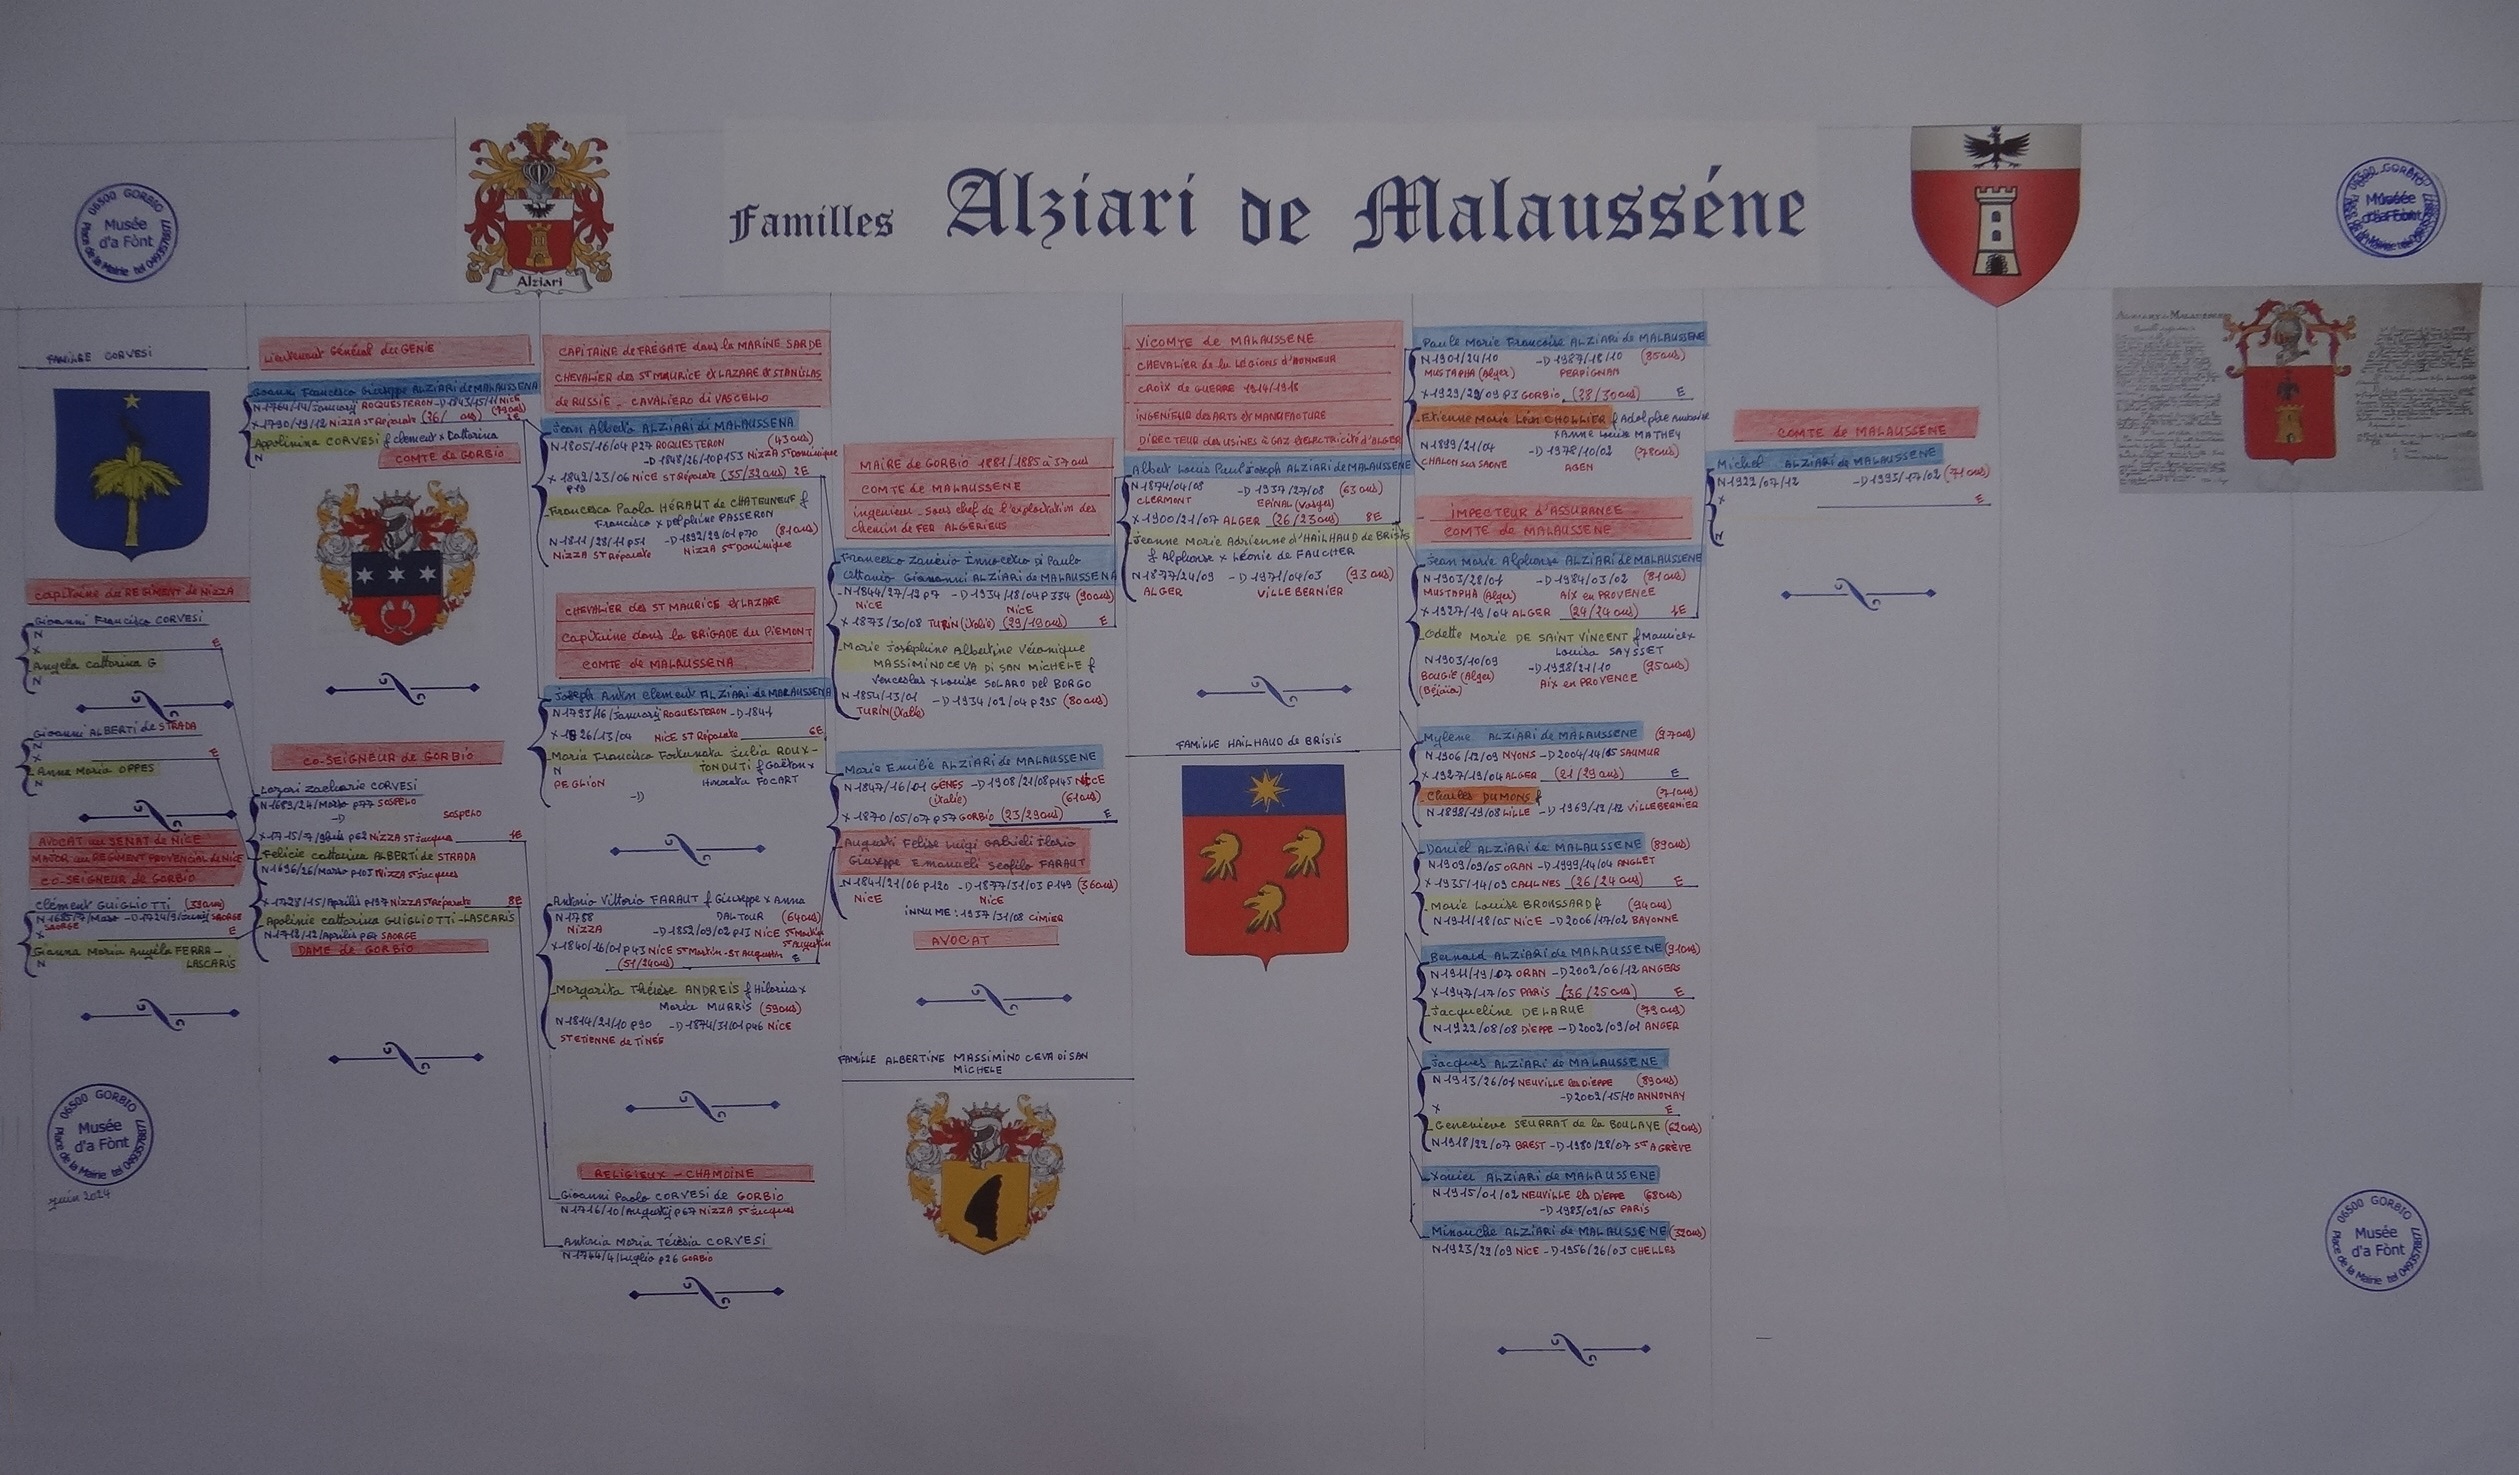 Familles Alziari de Malausséne
Alziari
06500 GORBIO
Musée
d'a Fònt
Place de la Mairie
06500 GORBIO
Musée
d'a Fònt
Place de la Mairie
FAMILLE CORVESI
Capitaine du REGIMENT de NIZZA
Gioanni Francisco CORVESI
N
X E
Angela Cattarina G
N
Gioanni ALBERTI de STRADA
N
X E
Anna Maria OPPES
N
AVOCAT au SENAT de NICE
MAJOR au REGIMENT PROVINCIAL de NICE
CO-SEIGNEUR de GORBIO
Clément GUIGLIOTTI (39ans)
SAORGE
X E
Gianna Maria Angéla FERRA-
LASCARIS
N
06500 GORBIO
Musée
d'a Fònt
Place de la Mairie
juin 2024
Lieutenant Général du GENIE
Gioanni Francesco Giuseppe ALZIARI de MALAUSSENA
N 1764/14/Januarij ROQUESTERON - D 1843/15/11 NICE
X 1790/19/12 NIZZA St Réparate (26/ ans) (79ans)
Appolinina CORVESI f Clement x Cattarina
N
COMTE de GORBIO
CO-SEIGNEUR de GORBIO
Lazari Zacharie CORVESI
N 1689/24/Marso p77 SOSPELO
-D SOSPELO
NIZZA St Jacques 1E
Félicie Cattarina ALBERTI de STRADA
N 1696/26/Marso p103 NIZZA St Jacques
X 1728/15/Aprilis p197 NIZZA St Réparate 8E
Apolinie Cattarina GUIGLIOTTI-LASCARIS
N 1712/12/Aprilis p67 SAORGE
DAME de GORBIO
CAPITAINE de FRÉGATE dans la MARINE SARDE
CHEVALIER des St MAURICE et LAZARE et STANISLAS
de RUSSIE - CAVALIERO di VASCELLO
Jean Alberto ALZIARI di MALAUSSENA
N 1805/16/04 p27 ROQUESTERON (43ans)
-D 1848/26/10 p153 NIZZA St Dominique
X 1842/23/06 NICE St Réparate (35/32ans) 2E
p19
Francesca Paola HÉRAUT de CHATEUNEUF f
Francisco x Delphine PASSERON
N 1811/28/11 p51 -D 1892/29/01 p70 (81ans)
NIZZA St Réparate NIZZA St Dominique
CHEVALIER des St MAURICE et LAZARE
Capitaine dans la BRIGADE du PIEMONT
COMTE de MALAUSSENA
Joseph Anton Clement ALZIARI de MARAUSSENA
N 1793/16/Januarij ROQUESTERON -D 1841
X 1826/13/04 NICE St Réparate 6E
Maria Francisca Fortunata Julia ROUX-
N TONDUTI f Gaëtan x
PEGLION Honorata FOCART
-D
Antonio Vittorio FARAUT f Giuseppe x Anna
N 1788 DALTOUR (64ans)
NIZZA -D 1852/09/02 p13 NICE St Martin
St Augustin
X 1840/16/01 p43 NICE St Martin-St Augustin
(51/24ans) E
Margarita Thérèse ANDREIS f Hilarius x
Maria MURRIS (59ans)
N 1814/21/10 p90 -D 1874/31/01 p46 NICE
St ETIENNE de TINÉE
RELIGIEUX - CHAMOINE
Gioanni Paolo CORVESI de GORBIO
N 1716/10/Augustij p67 NIZZA St Jacques
Antonia Maria Térésia CORVESI
N 1744/4/Luglio p26 GORBIO
MAIRE de GORBIO 1881/1885 à 37 ans
COMTE de MALAUSSENE
ingenieur - sous chef de l'exploitation des
chemin de FER ALGERIEUS
Francesco Zaverio Innocetio Di Paulo
Ottavio Giananni ALZIARI de MALAUSSENA
N 1844/27/12 p7 -D 1934/18/04 p334 (90ans)
NICE NICE
X 1873/30/08 TURIN (italie) (29/19ans) E
Marie Joséphine Albertine Véronique
MASSIMINO CEVA Di SAN MICHELE f
Venceslas x Louise SOLARO del BORGO
N 1854/13/01 -D 1934/02/04 p295 (80ans)
TURIN (italie)
Marie Emilie ALZIARI de MALAUSSENE
N 1847/16/01 GÊNES -D 1908/21/08 p145 NICE
(italie) (61ans)
X 1870/05/07 p57 GORBIO (23/29ans) E
Augusti Felise Luigi Gabrieli Ilario
Giuseppe Emanueli Seofilo FARAUT
N 1841/21/06 p120 -D 1877/31/03 p149 (36ans)
NICE NICE
INHUME: 1937/31/08 CIMIER
AVOCAT
FAMILLE ALBERTINE MASSIMINO CEVA Di SAN
MICHELE
VICOMTE de MALAUSSENE
CHEVALIER de la LÉGIONS d'HONNEUR
CROIX de GUERRE 1914/1918
INGENIEUR des ARTS et MANUFACTURE
DIRECTEUR des USINES à GAZ et ELECTRICITÉ d'ALGER
Albert Louis Paul Joseph ALZIARI de MALAUSSENE
N 1874/04/08 -D 1937/27/08 (63ans)
CLERMONT EPINAL (Vosges)
X 1900/21/07 ALGER (26/23ans) 8E
Jeanne Marie Adrienne d'HAILHAUD de BRISIS
f Alphonse x Léonie de FAUCHER
N 1877/24/09 -D 1971/04/03 (93ans)
ALGER VILLE BERNIER
FAMILLE HAILHAUD de BRISIS
Paule Marie Francoise ALZIARI de MALAUSSENE
N 1901/24/10 -D 1987/18/10 (85ans)
MUSTAPHA (Alger) PERPIGNAN
X 1929/29/09 p3 GORBIO (28/30ans) E
Etienne Marie Léon CHOLLIER f Adolphe Antoine
x Anne Louise MATHEY
N 1899/21/04 -D 1978/10/02 (78ans)
CHALON sur SAONE AGEN
IMPECTEUR d'ASSURANCE
COMTE de MALAUSSENE
Jean Marie Alphonse ALZIARI de MALAUSSENE
N 1903/28/01 -D 1984/03/02 (81ans)
MUSTAPHA (Alger) AIX en PROVENCE
X 1927/19/04 ALGER (24/24ans) 1E
Odette Marie DE SAINT VINCENT f Maurice x
Louisa SAYSSET
N 1903/10/09 -D 1998/21/10 (95ans)
BOUGIE (Alger) AIX en PROVENCE
(Béjaïa)
Mylene ALZIARI de MALAUSSENE (97ans)
N 1906/12/09 NYONS -D 2004/14/05 SAUMUR
X 1927/19/04 ALGER (21/29ans) E
Charles DUMONS f (71ans)
N 1898/19/08 LILLE -D 1969/12/12 VILLEBERNIER
Daniel ALZIARI de MALAUSSENE (89ans)
N 1909/09/05 ORAN -D 1999/14/04 ANGLET
X 1935/14/09 CAULNES (26/24ans) E
Marie Louise BROUSSARD f (94ans)
N 1911/18/05 NICE -D 2006/17/02 BAYONNE
Bernard ALZIARI de MALAUSSENE (91ans)
N 1911/19/07 ORAN -D 2002/06/12 ANGERS
X 1947/17/05 PARIS (36/25ans) E
Jacqueline DELARUE (79ans)
N 1922/08/08 DIEPPE -D 2002/09/01 ANGER
Jacques ALZIARI de MALAUSSENE
N 1913/26/01 NEUVILLE les DIEPPE (89ans)
-D 2002/15/10 ANNONAY
X E
Genevieve SEURRAT de la BOULAYE (62ans)
N 1918/22/07 BREST -D 1980/28/07 St AGRÈVE
Xavier ALZIARI de MALAUSSENE
N 1915/01/02 NEUVILLE les DIEPPE (68ans)
-D 1983/02/05 PARIS
Minouche ALZIARI de MALAUSSENE (32ans)
N 1923/22/09 NICE -D 1956/26/03 CHELLES
COMTE de MALAUSSENE
Michel ALZIARI de MALAUSSENE
N 1922/07/12 -D 1993/17/02 (71ans)
X E
N
06500 GORBIO
Musée
d'a Fònt
Place de la Mairie